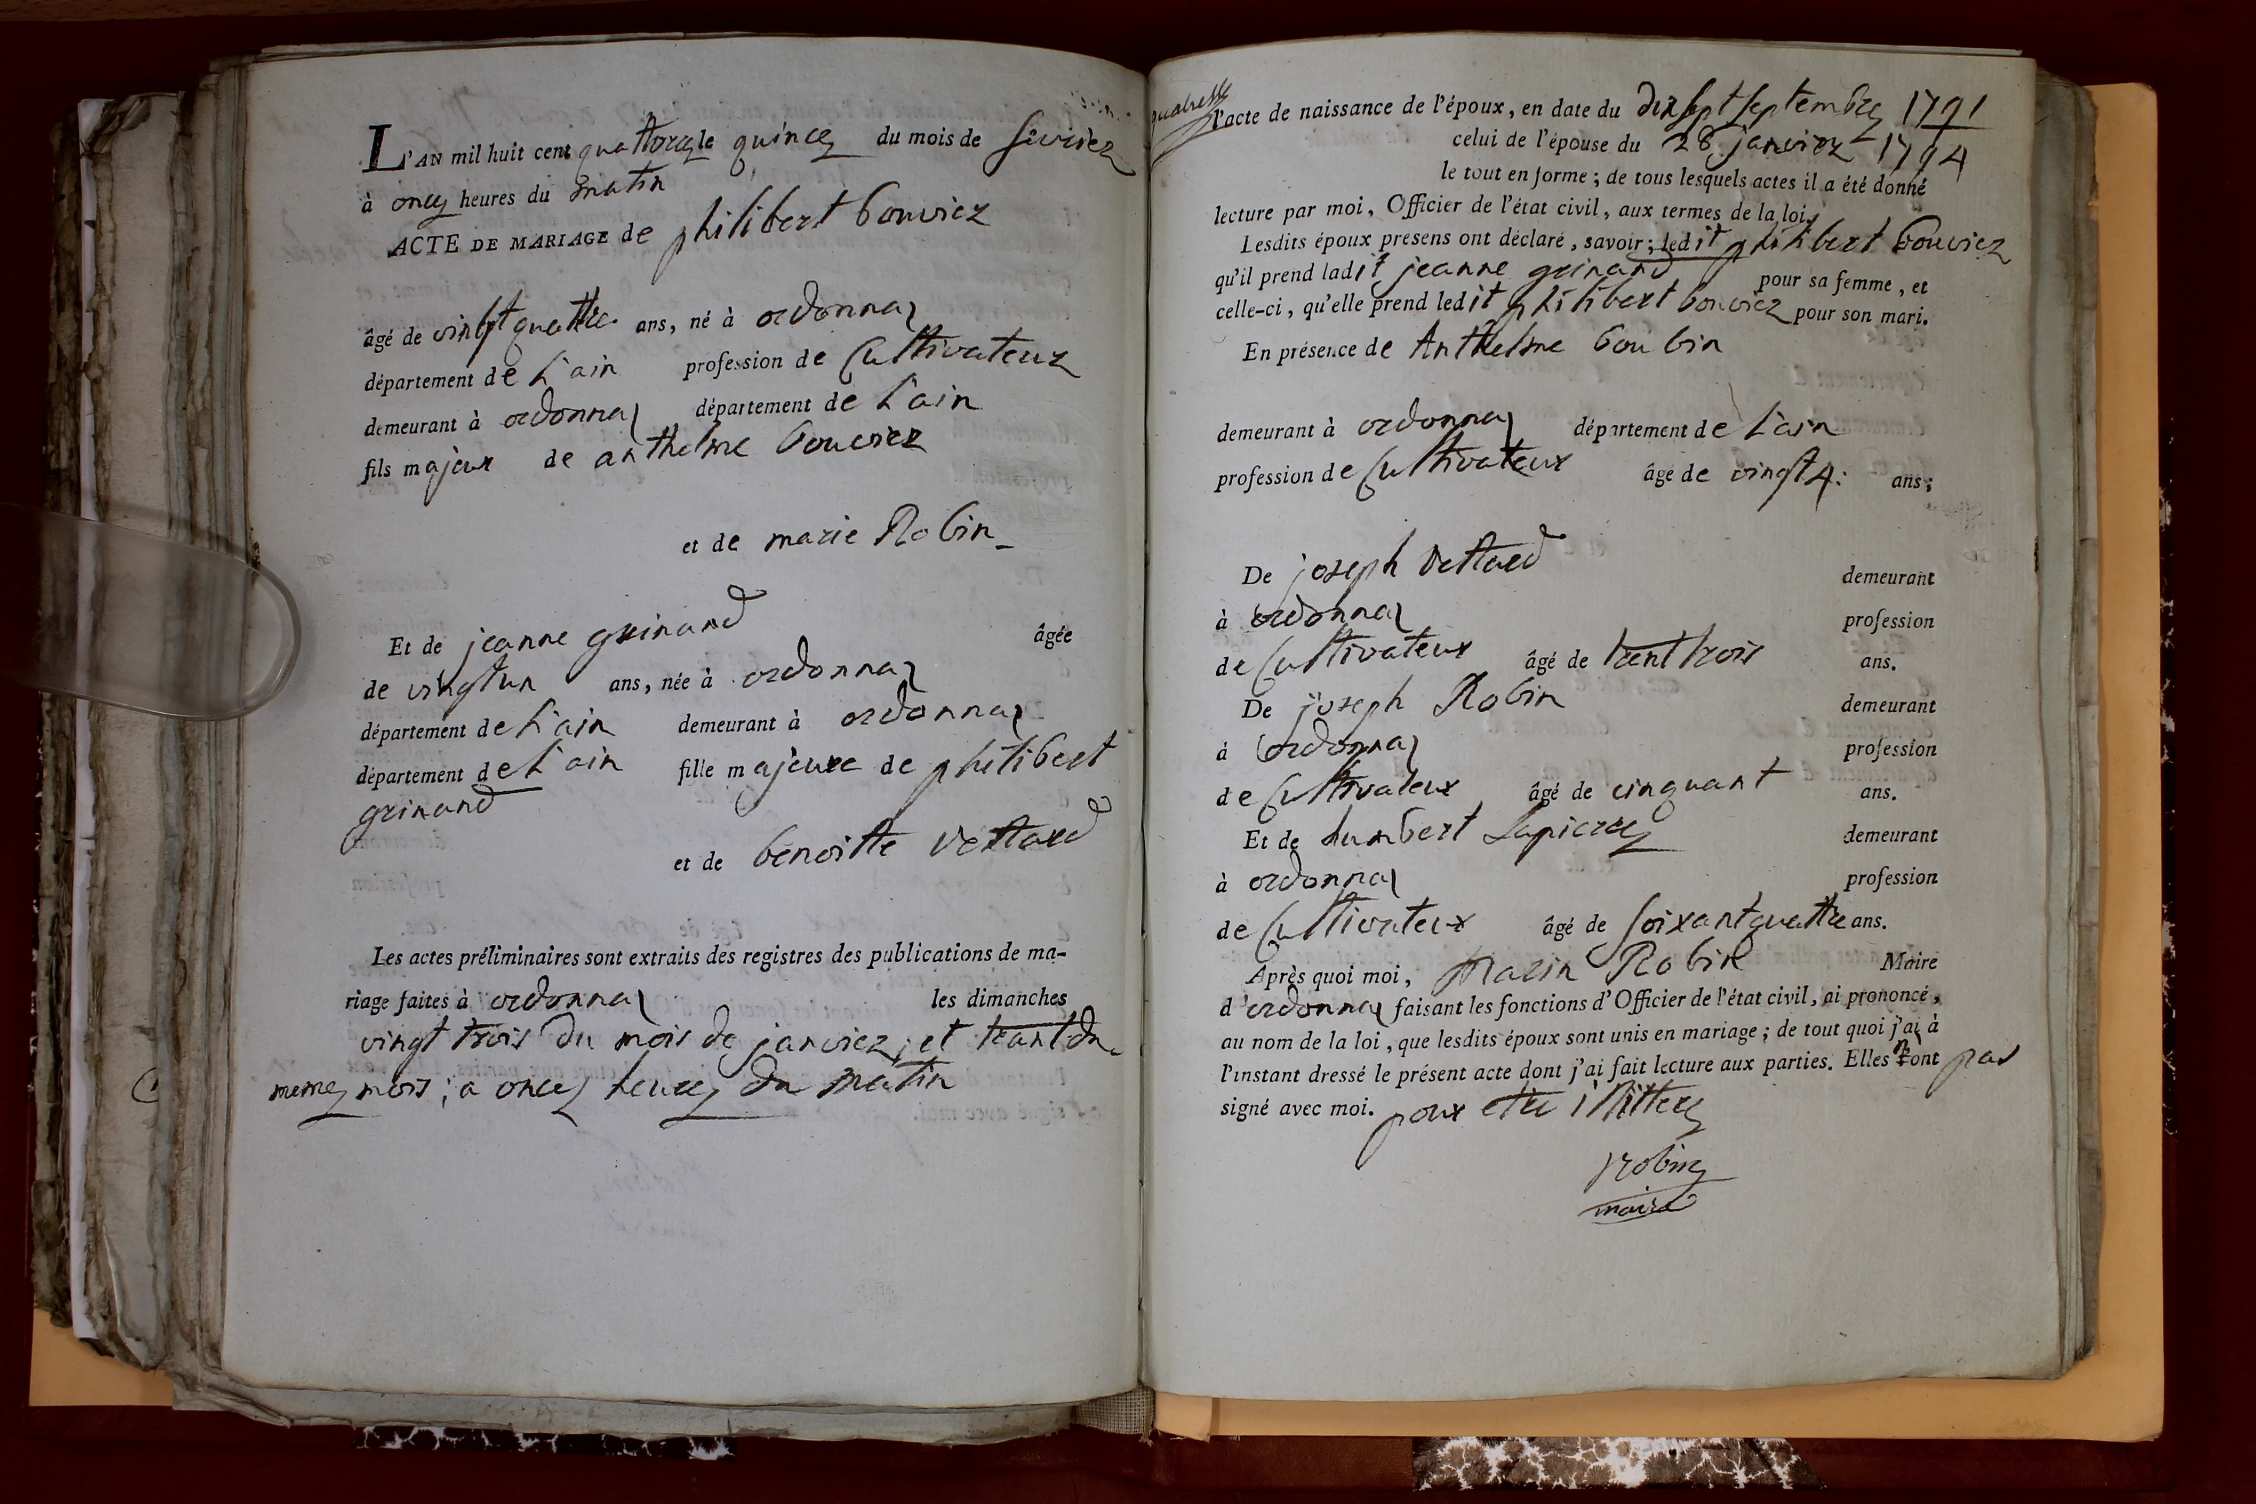 L'AN mil huit cent quattorze le quince du mois de fevrier
à once heures du matin
ACTE DE MARIAGE de philibert bouvier
âgé de vingt quattre ans, né à ordonnaz
département de L'ain profession de Cultivateur
demeurant à ordonnaz département de L'ain
fils majeur de anthelme bouvier
et de marie Robin
Et de jeanne grinand âgée
de vingt un ans, née à ordonnaz
département de L'ain demeurant à ordonnaz
département de L'ain fille majeure de philibert
grinand
et de benoitte vettard
Les actes préliminaires sont extraits des registres des publications de ma-
riage faites à ordonnaz les dimanches
vingt trois du mois de janvier, et trant du
meme mois; a once heures du matin
l'acte de naissance de l'époux, en date du dix sept septembre 1791
celui de l'épouse du 28 janvier 1794
le tout en forme; de tous lesquels actes il a été donné
lecture par moi, Officier de l'état civil, aux termes de la loi.
Lesdits époux présens ont déclaré, savoir; ledit philibert bouvier
qu'il prend ladit jeanne grinand pour sa femme, et
celle-ci, qu'elle prend ledit philibert bouvier pour son mari.
En présence de Anthelme boubin
demeurant à ordonnaz département de L'ain
profession de Cultivateur âgé de vingt 4: ans;
De joseph vettard demeurant
à ordonnaz profession
de Cultivateur âgé de trent trois ans.
De joseph Robin demeurant
à ordonnaz profession
de Cultivateur âgé de cinquant ans.
Et de humbert Lapierre demeurant
à ordonnaz profession
de Cultivateur âgé de soixant quattre ans.
Après quoi moi, marin Robin Maire
d'ordonnaz faisant les fonctions d'Officier de l'état civil, ai prononcé,
au nom de la loi, que lesdits époux sont unis en mariage; de tout quoi j'ai à
l'instant dressé le présent acte dont j'ai fait lecture aux parties. Elles n'ont pas
signé avec moi. pour etre illittere
Robin
maire